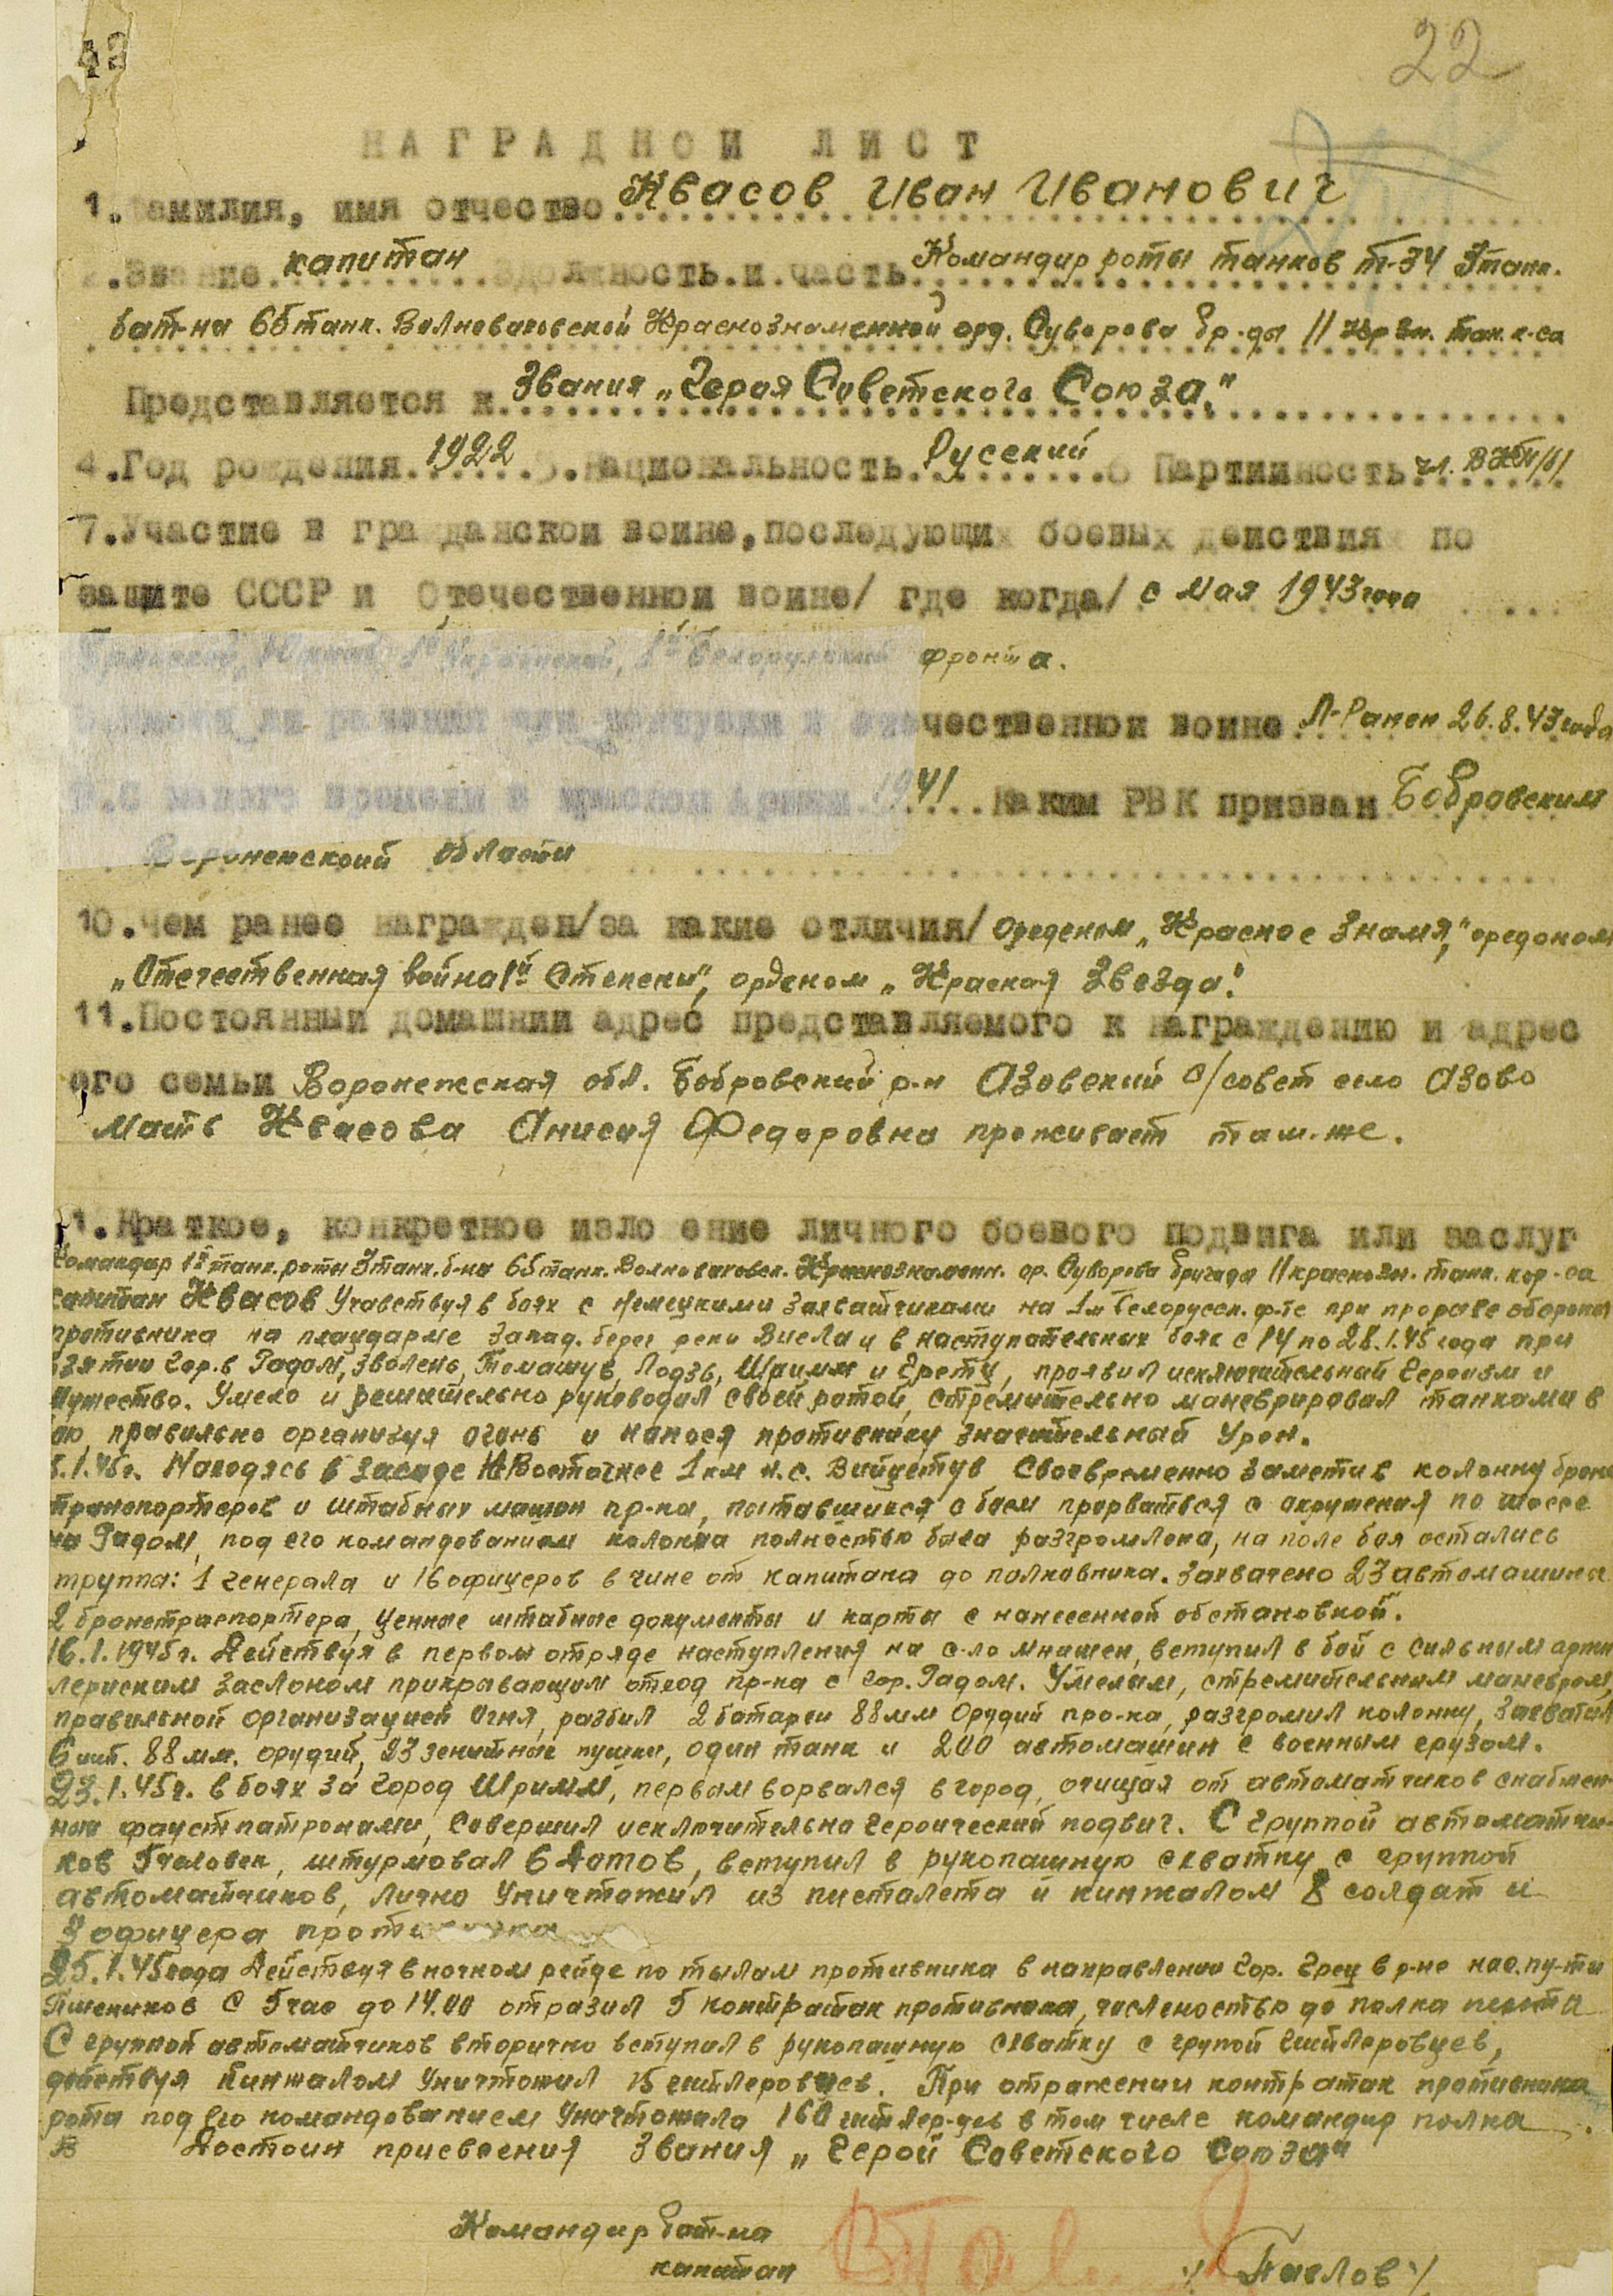 42
22
НАГРАДНОЙ ЛИСТ
1. Фамилия, имя отчество Квасов Иван Иванович
2. Звание капитан должность и часть Командир роты танков т-34 3танк.
бат-на 65танк. Волноваховской Краснознаменной орд. Суворова бр-ды 11 Кр Зн. тан. к-са
Представляется к Звания „Героя Советского Союза."
4. Год рождения 1922 5. Национальность Русский 6 Партийность чл. ВКП/б/
7. Участие в гражданской войне, последующих боевых действиях по
защите СССР и Отечественной войне/ где когда/ с мая 1943 года
1й Украинский, 1й Белорусский фронта.
8. Имеет ли ранения или контузии в отечественной войне Л-Ранен 26.8.43 года
9. С какого времени в красной Армии 1941 Каким РВК призван Бобровским
Воронежской области
10. Чем ранее награжден/за какие отличия/ Ореденом „Красное Знамя," ореденом
„Отечественная война 1й Степени", орденом „Красная Звезда".
11. Постоянный домашний адрес представляемого к награждению и адрес
его семьи Воронежская обл. Бобровский р-н Азовский с/совет село Азово
Мать Квасова Анисия Федоровна проживает там-же.
1. Краткое, конкретное изло ение личного боевого подвига или заслуг
Командир 1й танк. роты 3танк. б-на 65танк. Волноваховск. Краснознаменн. ор. Суворова бригада 11 краснозн. танк. кор-са
капитан Квасов Участвуя в боях с немецкими захватчиками на 1м Белорусск. ф-те при прорыве обороны
противника на плацдарме запад. берег реки Висла и в наступательных боях с 14 по 28.1.45 года при
взятии гор.в Радом, Зволень, Томашув, Лодзь, Шримм и Гретц, проявил исключительный героизм и
мужество. Умело и решительно руководил своей ротой, стремительно маневрировал танками в
бою, правильно организуя огонь и нанося противнику значительный Урон.
.1.45г. Находясь в засаде Восточнее 1 км н.с. Вийцетув Своевременно заметив колонну броне
транспортеров и штабных машин пр-ка, пытавшихся с боем прорваться с окружения по шоссе
на Радом, под его командованием колонна полностью была разгромлена, на поле боя остались
труппа: 1 генерала и 16 офицеров в чине от капитана до полковника. Захвачено 23 автомашины
2 бронетраспортера, ценные штабные документы и карты с нанесенной обстановкой.
16.1.1945г. Действуя в первом отряде наступления на с-ло мнишек, вступил в бой с сильным арти
лериским заслоном прикрывающим отход пр-ка с гор. Радом. Умелым, стремительным маневром,
правильной организацией Огня, разбил 2 батареи 88мм Орудий про-ка, разгромил колонну, Захватил
6 шт. 88 мм. орудий, 23 зенитные пушки, один танк и 200 автомашин с военным грузом.
23.1.45г. в боях за город Шримм, первым ворвался в город, очищая от автоматчиков снабжен-
ных фаустпатронами, Совершил исключительно героический подвиг. С группой автоматчи-
ков 5человек, штурмовал 6 Домов, вступил в рукопашную схватку с группой
автоматчиков, лично Уничтожил из писталета и кинжалом 8 солдат и
3 офицера противника
25.1.45года Действуя в ночном рейде по тылам противника в направлении гор. Грец в р-не нас. пу-та
с 5час до 14.00 отразил 5 контратак противника, численостью до полка пехоты
С группой автоматчиков вторично вступил в рукопашную схватку с групой гитлеровцев,
действуя Кинжалом Уничтожил 15 гитлеровцев. При отражении контратак противника
рота под Его командованием Уничтожила 160 гитлер-цев в том числе командир полка.
Достоин присвоения Звания „Герой Советского Союза"
Командир бат-на
капитан
/Павлов/